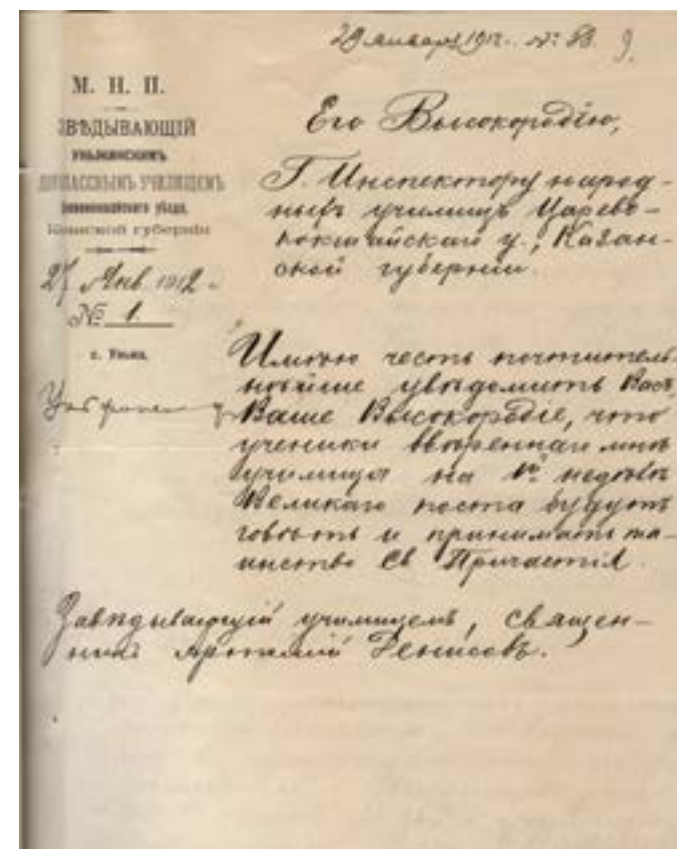 29 января 1912. № 58. 9.
М. Н. П.
ЗАВѢДЫВАЮЩІЙ
УНЬЖИНСКИМЪ
КЛАССНЫМЪ УЧИЛИЩЕМЪ
уѣзда,
Казанской губерніи
27 Янв. 1912
№ 1
с. Уньжа.
Его Высокородію,
Г. Инспектору народ-
ныхъ училищъ Царево-
кокшайскаго у., Казан-
ской губерніи.
Имѣю честь почтитель-
нѣйше увѣдомить Васъ,
Ваше Высокородіе, что
ученики ввѣреннаго мнѣ
училища на 1й недѣлѣ
Великаго поста будутъ
говѣть и принимать та-
инство Св Причастія.
Завѣдывающій училищемъ, священ-
никъ Денисовъ.